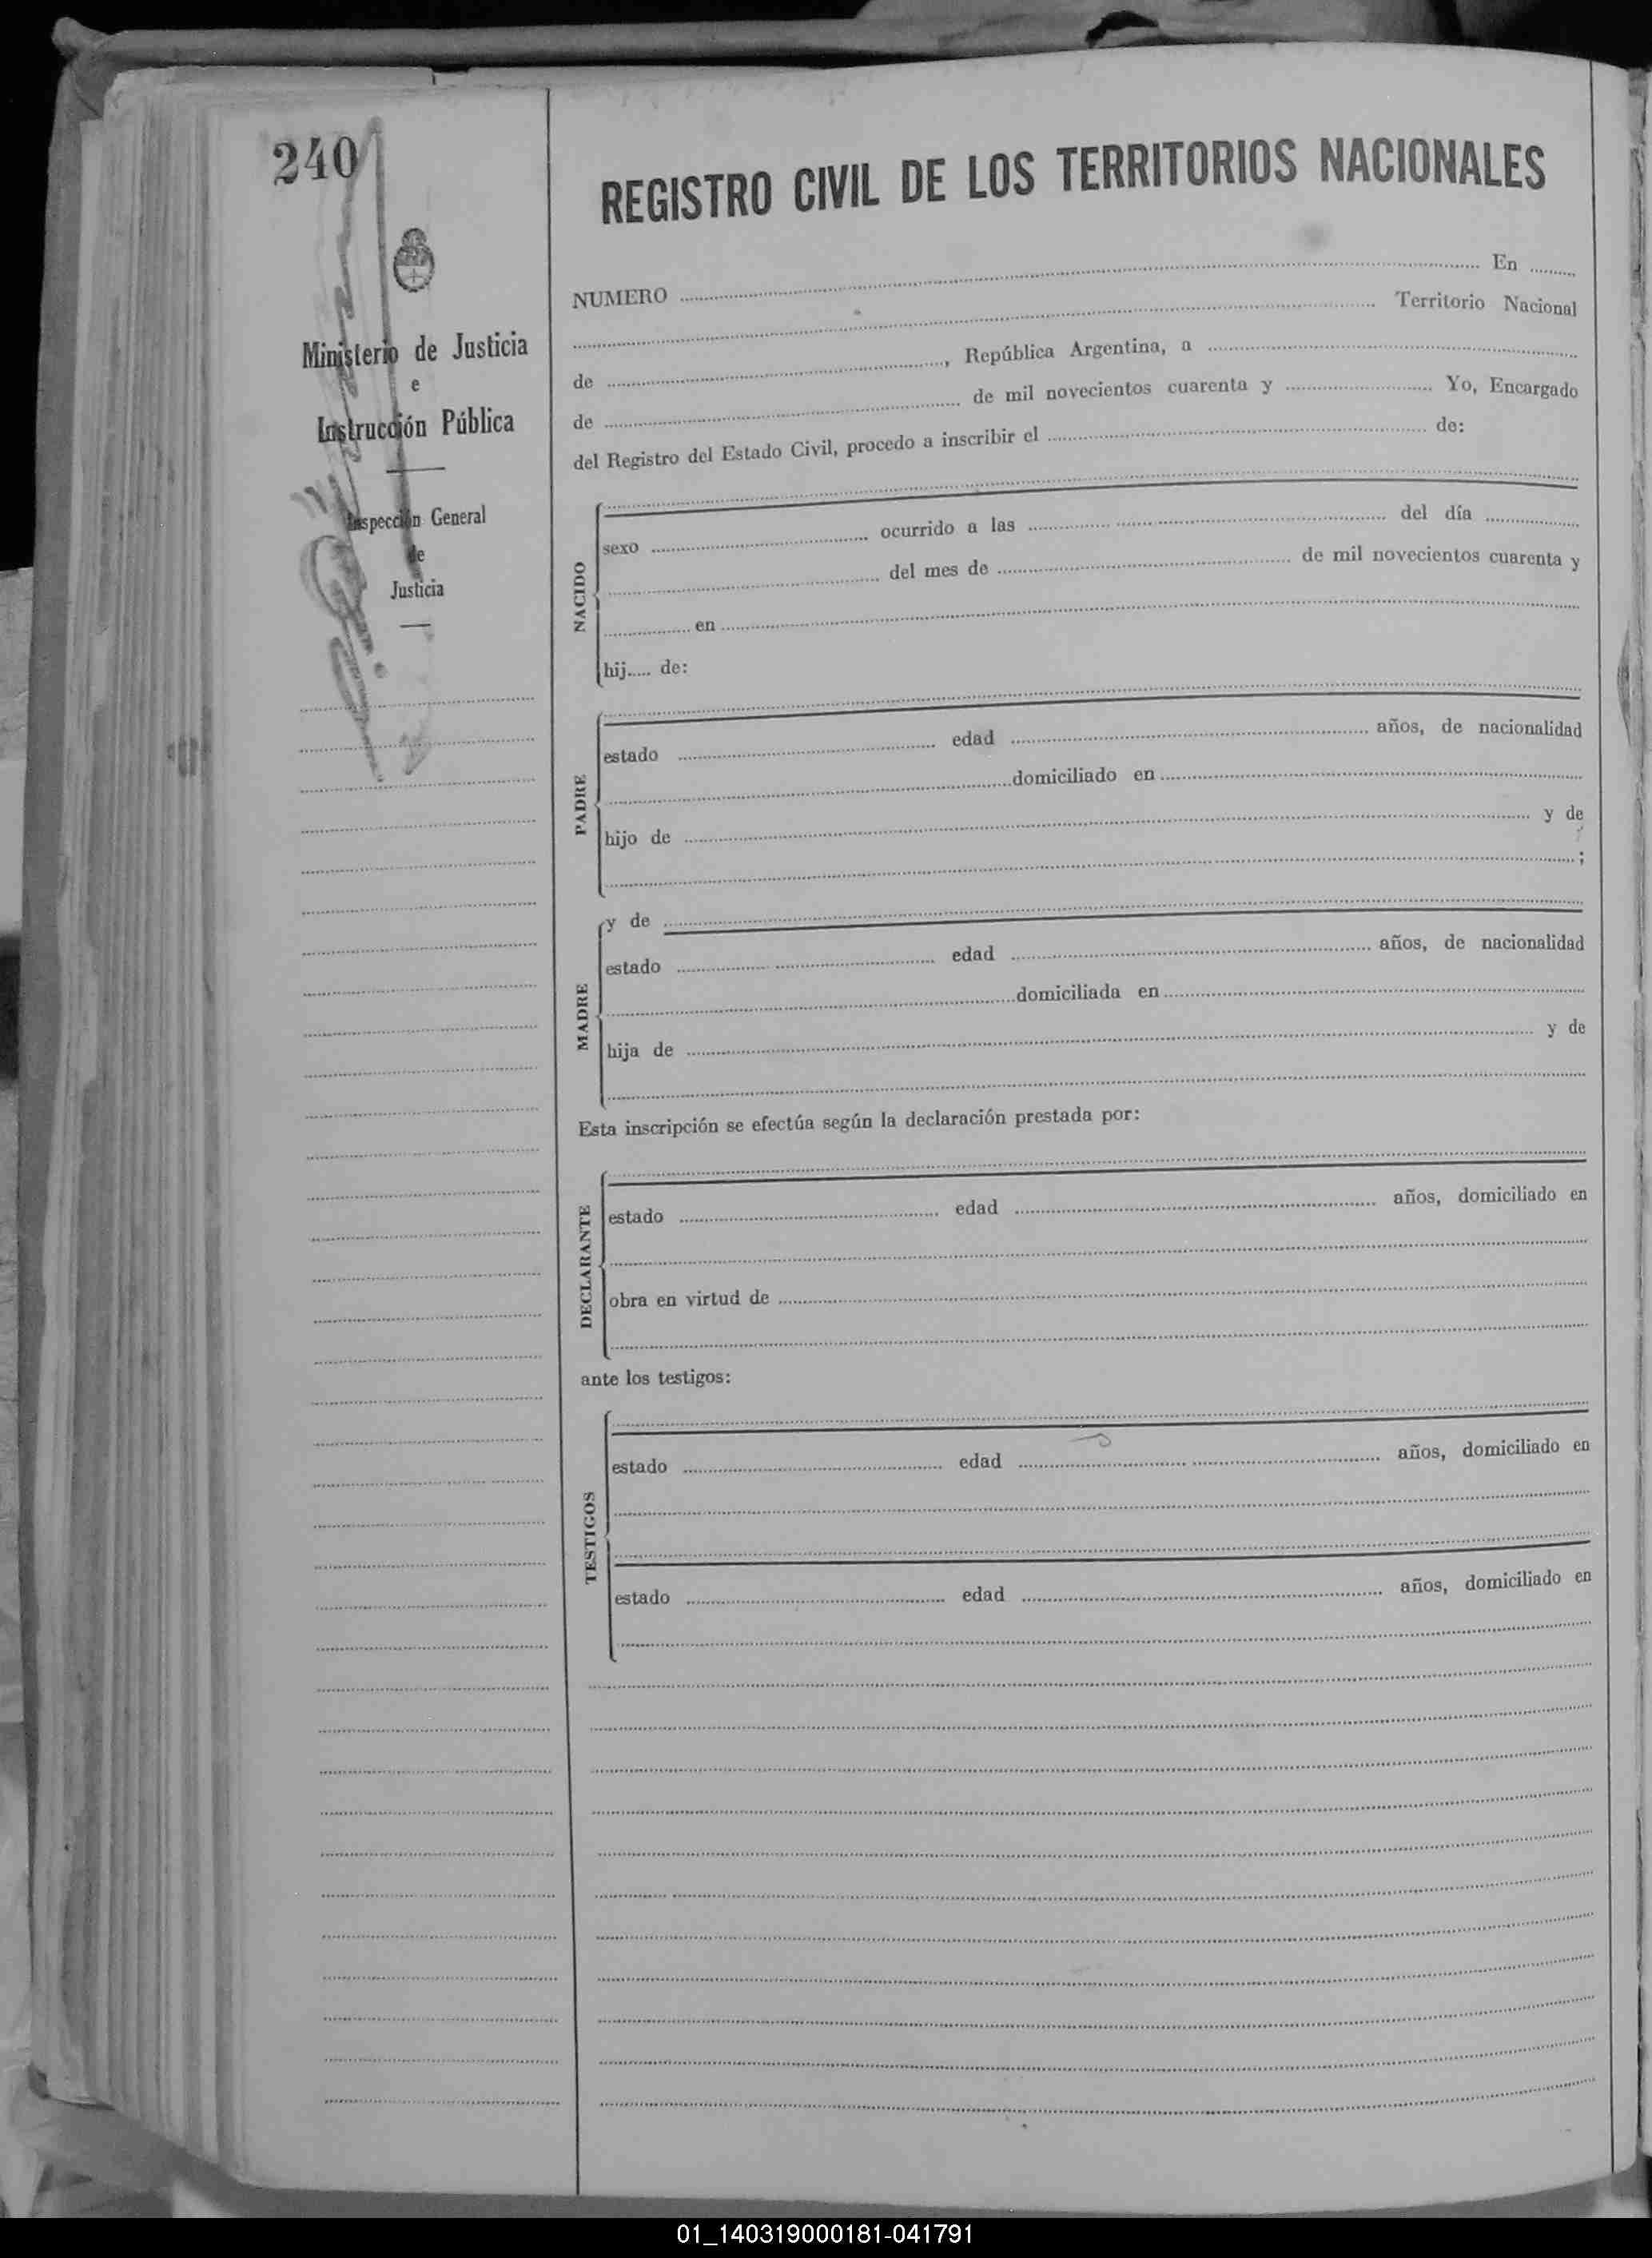 240
Ministerio de Justicia
e
Instrucción Pública
Inspección General
de
Justicia
REGISTRO CIVIL DE LOS TERRITORIOS NACIONALES
NUMERO ........ En ........
........ Territorio Nacional
de ........, República Argentina, a ........
de ........ de mil novecientos cuarenta y ........ Yo, Encargado
del Registro del Estado Civil, procedo a inscribir el ........ de:
NACIDO
sexo ........ ocurrido a las ........ del día ........
........ del mes de ........ de mil novecientos cuarenta y
........ en ........
hij..... de:
PADRE
estado ........ edad ........ años, de nacionalidad
........ domiciliado en ........
hijo de ........ y de
........ ;
MADRE
y de ........
estado ........ edad ........ años, de nacionalidad
........ domiciliada en ........
hija de ........ y de
Esta inscripción se efectúa según la declaración prestada por:
DECLARANTE
estado ........ edad ........ años, domiciliado en
obra en virtud de ........
ante los testigos:
TESTIGOS
estado ........ edad ........ años, domiciliado en
estado ........ edad ........ años, domiciliado en
01_140319000181-041791